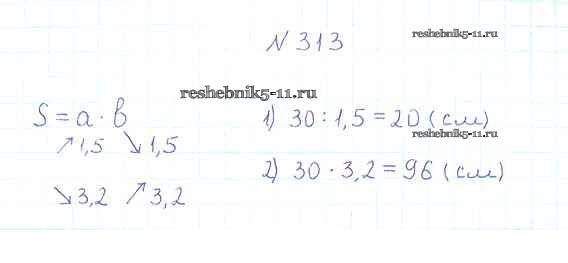 N 313
reshebnik5-11.ru
reshebnik5-11.ru
S = a · b
↗1,5 ↘1,5
↘3,2 ↗3,2
1) 30 : 1,5 = 20 (см)
reshebnik5-11.ru
2) 30 · 3,2 = 96 (см)